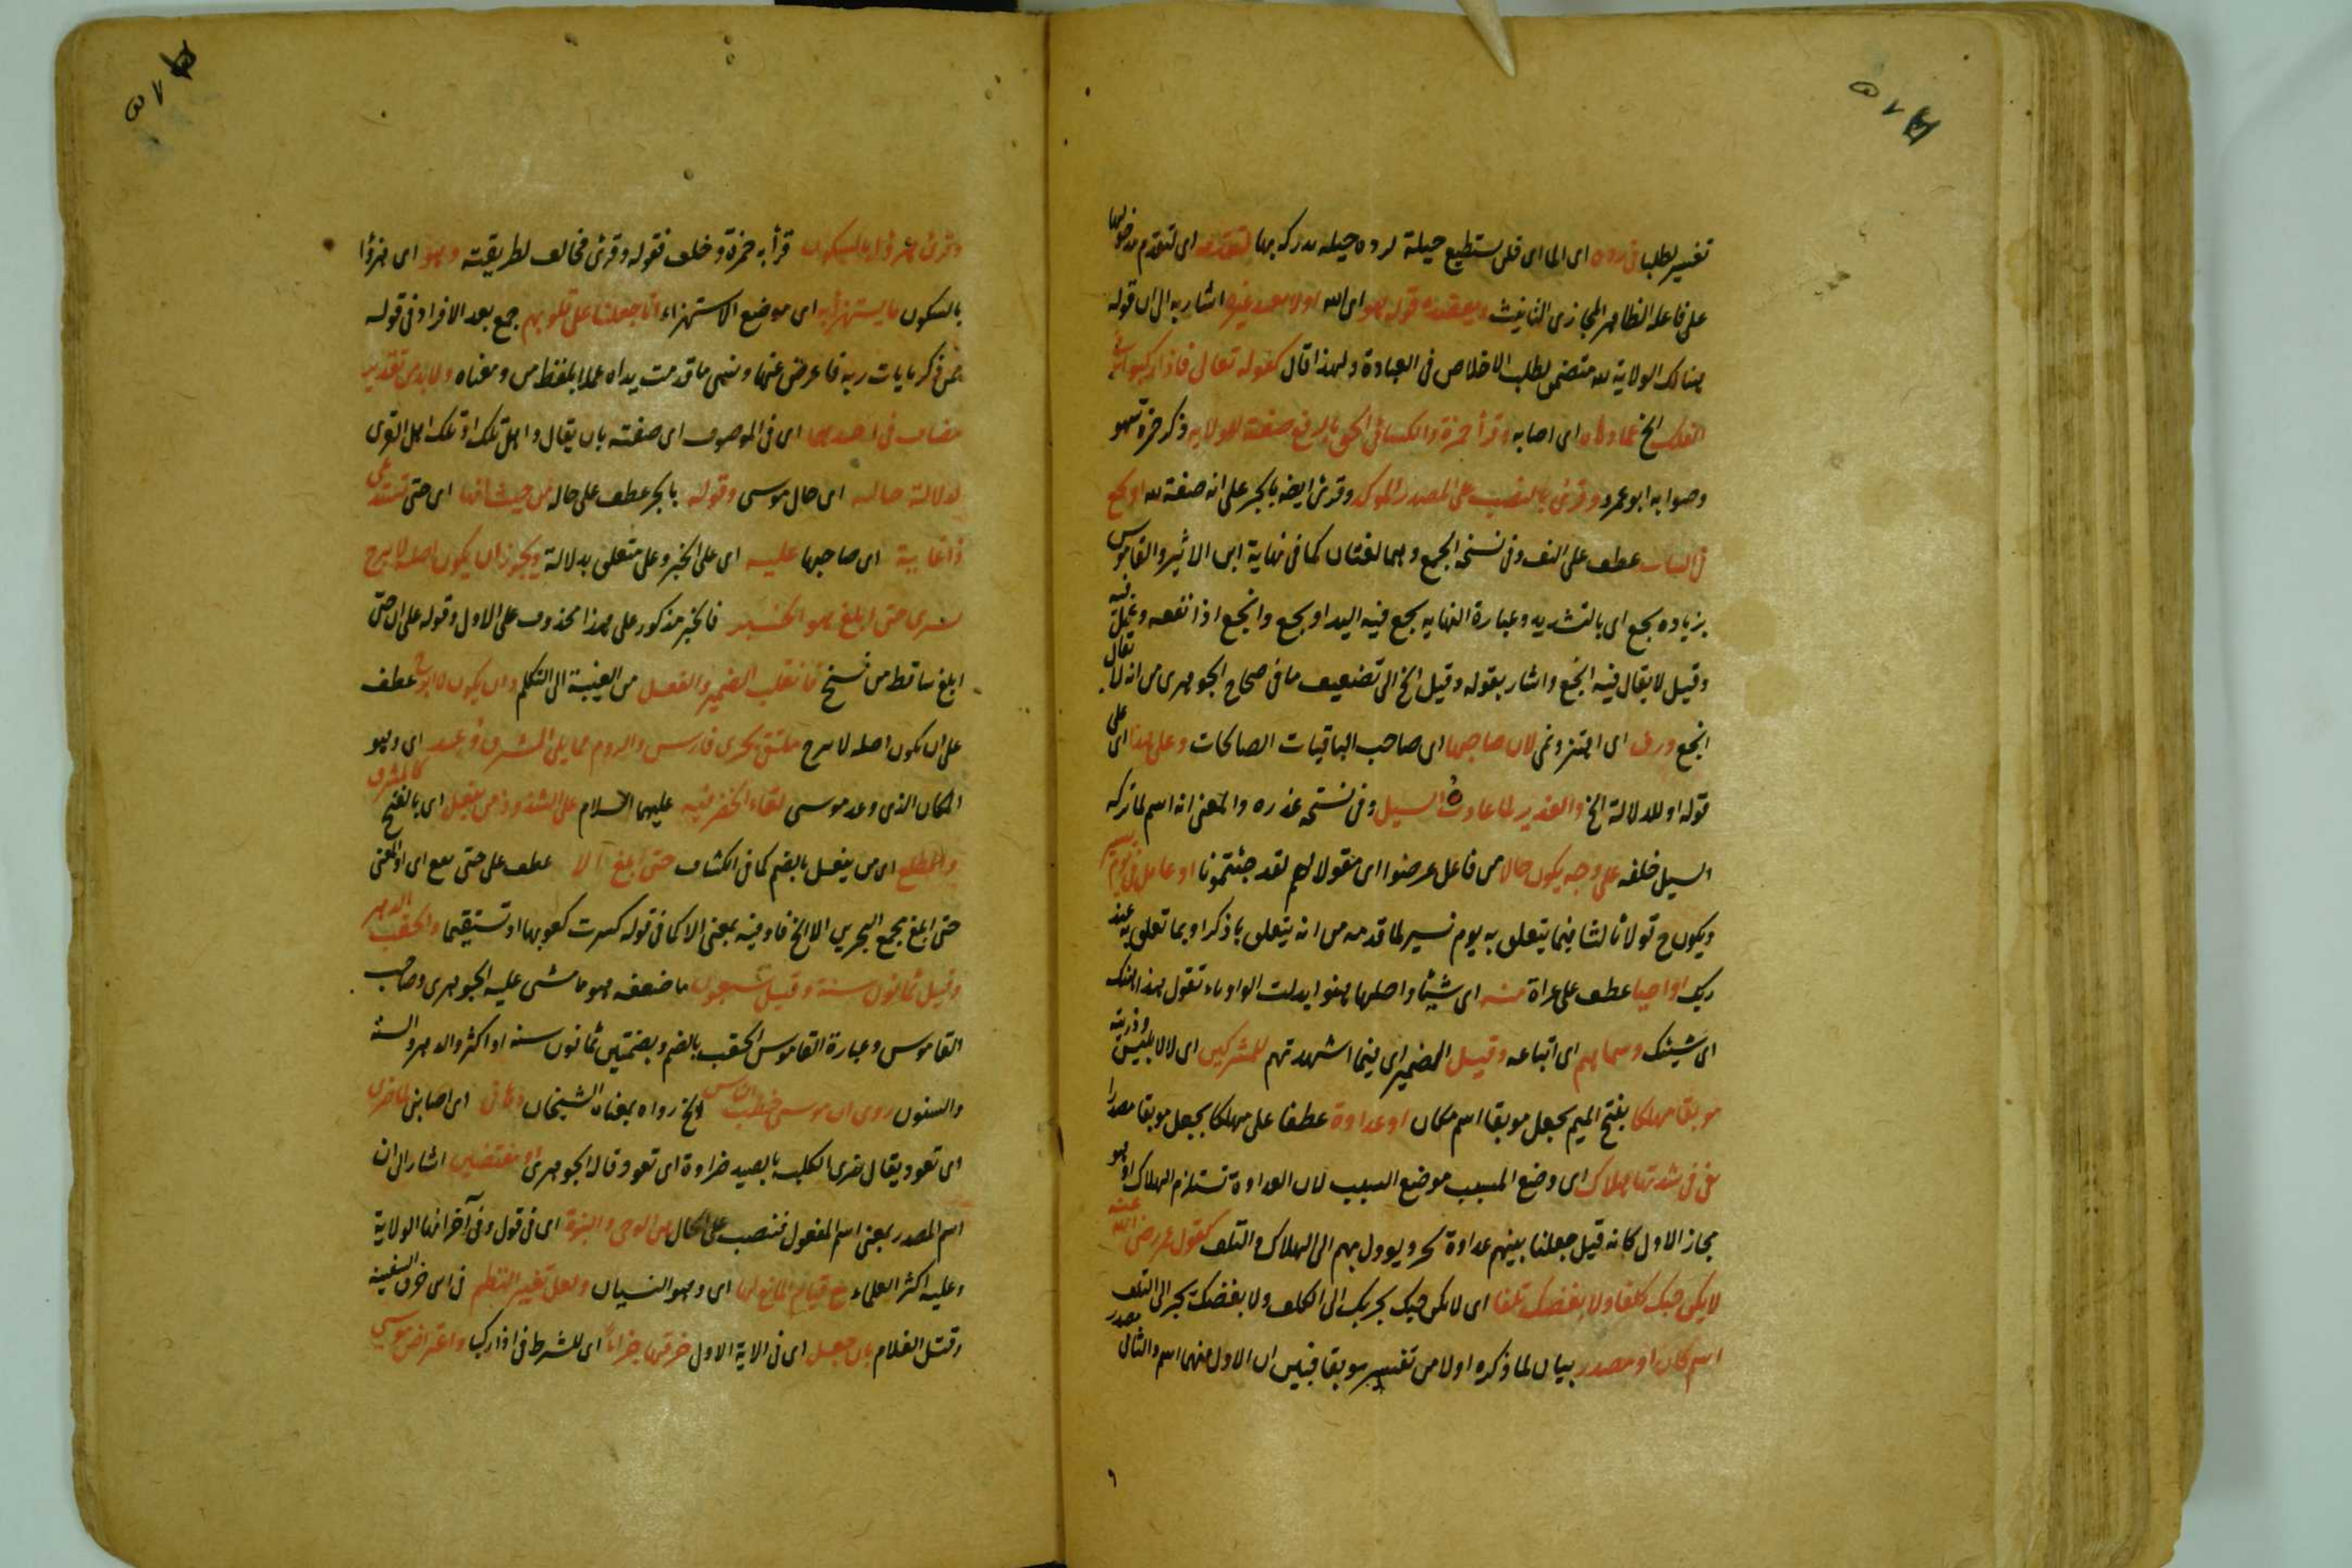 تفسير لطلبا في رده اى الماء اى فلن يستطيع حيلة لرده حيله يدركه بها لتقدمه اى لتقدم مدخولها
على فاعله الظاهر المجازى التانيث ويعضده قوله هو اى الله اولا يعبد غيره اشار به الى ان قوله
هنالك الولاية لله متضمن لطلب الاخلاص فى العبادة ولهذا قال كقوله تعالى فاذا ركبوا فى
الفلك الخ مما دهاه اى اصابه وقرأ حمزة والكسائى الحق بالرفع صفة للولاية وذكر حمزة سهو
وصوابه ابو عمرو وقرئ بالنصب على المصدر المؤكد وقرئ ايضا بالجر على انه صفة لله او نجع
فى النبات عطف على التف وفى نسخة انجع وهما لغتان كما فى نهاية ابن الاثير والقاموس
بزياده نجع اى بالتشديد وعبارة النهاية نجع فيه الدواء ونجع وانجع اذا نفعه وعمل فيه
وقيل لا يقال فيه انجع واشار بقوله وقيل الخ الى تضعيف ما فى صحاح الجوهرى من انه لا يقال
انجع ورف اى اهتز ونمى لان صاحبها اى صاحب الباقيات الصالحات وعلى هذا اى على
قوله او للدلالة الخ والغدير لما غادره السيل وفى نسخة غدره والمعنى انه اسم لما تركه
السيل خلفه على وجه يكون حالا من فاعل عرضوا اى مقولا لهم لقد جئتمونا او عامل فى يوم نسير
ويكون ح قولا ثالثا فيما يتعلق به يوم نسير لما قدمه من انه يتعلق باذكر او بما تعلق به عند
ربك او احيا عطف على عراة منه اى شيئا واصلها هنو ابدلت الواو هاء تقول هذا هنك
اى شيئك وسماهم اى اتباعه وقيل الضمير اى فيما اشهدتهم للمشركين اى لا لابليس وذريته
موبقا مهلكا بفتح الميم بجعل موبقا اسم مكان او عداوة عطفا على مهلكا بجعل موبقا مصدرا
هى فى شدتها هلاك اى وضع المسبب موضع السبب لان العداوة تستلزم الهلاك او هو
مجاز الاول كانه قيل جعلنا بينهم عداوة تجر ويوول بهم الى الهلاك والتلف كقول عمر رضى الله عنه
لا يكن حبك كلفا ولا بغضك تلفا اى لا يكن حبك يجر بك الى الكلف ولا بغضك يجر الى التلف
اسم مكان او مصدر بيان لما ذكره اولا من تفسير موبقا فبين ان الاول منهما اسم والثانى مصدر
وقرئ هزؤا بالسكون قرأ به حمزة وخلف فقوله وقرئ مخالف لطريقته وهو اى هزؤا
بالسكون ما يستهزأ به اى موضع الاستهزاء انا جعلنا على قلوبهم جمع بعد الافراد فى قوله
ممن ذكر بايات ربه فاعرض عنها ونسى ما قدمت يداه عملا بلفظ من ومعناه ولا بد من تقدير
مضاف فى احدهما اى فى الموصوف اى صفته بان يقال واهل تلك او تلك اهل القرى
لدلالة حاله اى حال موسى وقوله بالجر عطف على حاله من حيث انها اى حتى تستدعى
ذا غاية اى صاحبها عليه اى على الخبر وعلى متعلق بدلالة ويجوز ان يكون اصله لا يبرح
سيرى حتى ابلغ هو الخبر فالخبر مذكور على هذا محذوف على الاول وقوله على ان حتى
ابلغ ساقط من نسخ فانقلب الضمير والفعل من الغيبة الى التكلم وان يكون لا ابرح عطف
على ان يكون اصله لا يبرح ملتقى بحرى فارس والروم مما يلى المشرق وعد اى وهو
المكان الذى وعد موسى لقاء الخضر فيه عليهما السلام على الشذوذ من يفعل اى بالفتح كالمشرق
والمطلع اى من يفعل بالضم كما فى الكشاف حتى ابلغ الا عطف على حتى يقع اى او المعنى
حتى ابلغ مجمع البحرين الا الخ فاو فيه بمعنى الا كما فى قوله كسرت كعوبها او تستقيما والحقب الدهر
وقيل ثمانون سنة وقيل سبعون ما ضعفه هو ما مشى عليه الجوهرى وصاحب
القاموس وعبارة القاموس الحقب بالضم وبضمتين ثمانون سنه او اكثر والدهر والسنة
والسنون روى ان موسى خطب الناس الخ رواه بمعناه الشيخان دهانى اى اصابنى
اى تعود يقال ضرى الكلب بالصيد ضراوة اى تعود قاله الجوهرى او مقتصين اشار الى ان
اسم المصدر بمعنى اسم المفعول فنتصب على الحال هى الوحى والنبوة اى فى قول وفى آخر انها الولاية
وعليه اكثر العلماء مع قيام المانع لها اى وهو النسيان ولعل تغيير النظم فى اى خرق السفينة
وقتل الغلام بان جعل اى فى الاية الاول خرقها جزاء اى للشرط فى اذا ركبا واعتراض موسى